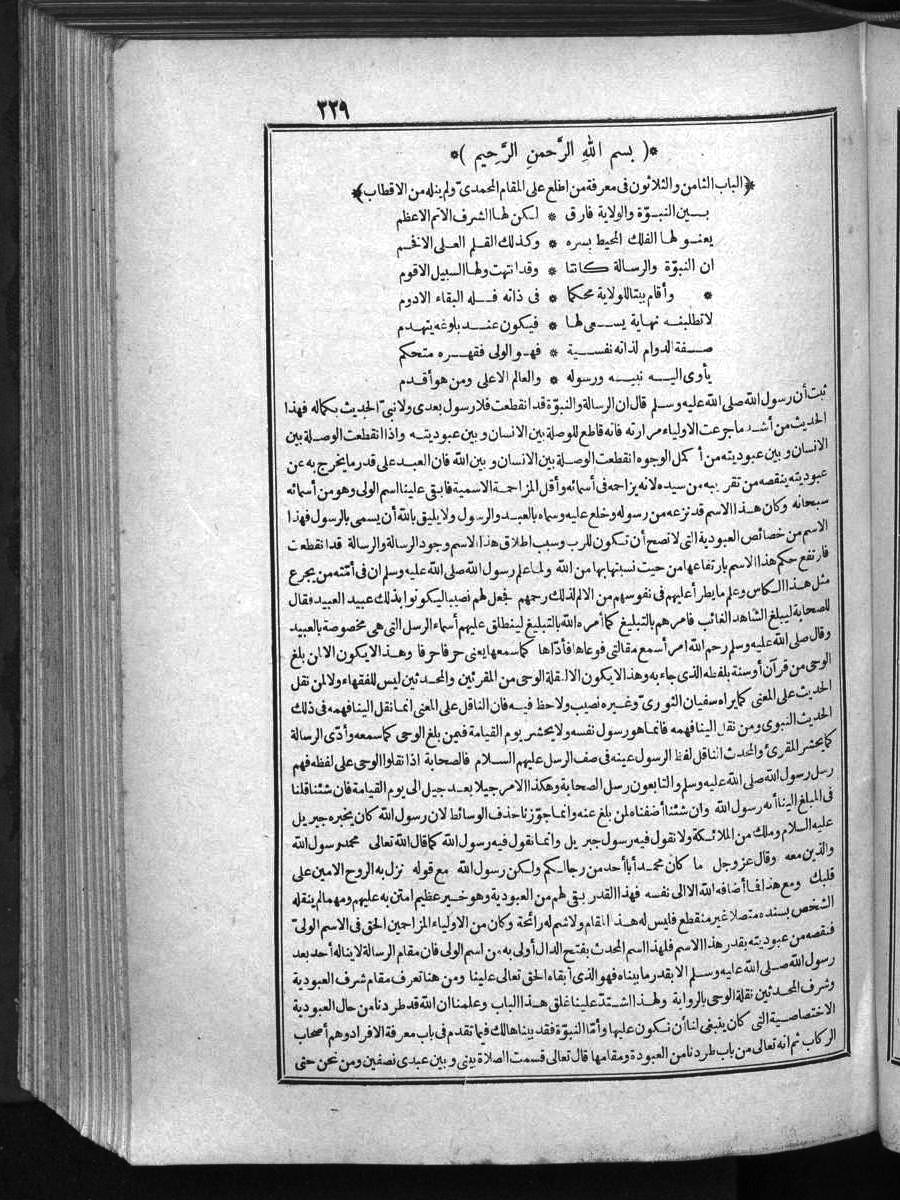 ٢٢٩
*( بسم اللهِ الرَّحمنِ الرَّحِيم )*
*(الباب الثامن والثلاثون فى معرفة من اطلع على المقام المحمدىّ ولم ينله من الاقطاب)*
بين النبوّة والولاية فارق * لكن لها الشرف الاتم الاعظم
يعنو لها الفلك المحيط بسره * وكذلك القلم العلى الافخم
ان النبوّة والرسالة كانتا * وقد انتهت ولها السبيل الاقوم
* وأقام بيتا للولاية محكما * فى ذاته فله البقاء الادوم
لا تطلبنه نهاية يسعى لها * فيكون عند بلوغه يتهدم
صفة الدوام لذاته نفسية * فهو الولى فقهره متحكم
يأوى اليه نبيه ورسوله * والعالم الاعلى ومن هو أقدم
ثبت أن رسول الله صلى الله عليه وسلم قال ان الرسالة والنبوّة قد انقطعت فلا رسول بعدى ولا نبىّ الحديث بكماله فهذا
الحديث من أشد ما جرعت الاولياء مرارته فانه قاطع للوصلة بين الانسان وبين عبوديته واذا انقطعت الوصلة بين
الانسان وبين عبوديته من أكمل الوجوه انقطعت الوصلة بين الانسان وبين الله فان العبد على قدر ما يخرج به عن
عبوديته ينقصه من تقريبه من سيده لانه يزاحمه فى أسمائه وأقل المزاحمة الاسمية فابقى علينا اسم الولى وهو من أسمائه
سبحانه وكان هذا الاسم قد نزعه من رسوله وخلع عليه وسماه بالعبد والرسول ولا يليق بالله أن يسمى بالرسول فهذا
الاسم من خصائص العبودية التى لا تصح أن تكون للرب وسبب اطلاق هذا الاسم وجود الرسالة والرسالة قد انقطعت
فارتفع حكم هذا الاسم بارتفاعها من حيث نسبتها بها من الله ولما علم رسول الله صلى الله عليه وسلم ان فى أمّته من يجرع
مثل هذا الكاس وعلم ما يطرأ عليهم فى نفوسهم من الالم لذلك رحمهم فجعل لهم نصيبا ليكونوا بذلك عبيد العبيد فقال
للصحابة ليبلغ الشاهد الغائب فامرهم بالتبليغ كما أمره الله بالتبليغ لينطلق عليهم أسماء الرسل التى هى مخصوصة بالعبيد
وقال صلى الله عليه وسلم رحم الله امرأ سمع مقالتى فوعاها فأدّاها كما سمعها يعنى حرفا حرفا وهذا لا يكون الا لمن بلغ
الوحى من قرآن أو سنة بلفظه الذى جاء به وهذا لا يكون الا لنقلة الوحى من المقرئين والمحدثين ليس للفقهاء ولا لمن نقل
الحديث على المعنى كما يراه سفيان الثورىّ وغيره نصيب ولا حظ فيه فان الناقل على المعنى انما نقل الينا فهمه فى ذلك
الحديث النبوى ومن نقل الينا فهمه فانما هو رسول نفسه ولا يحشر يوم القيامة فيمن بلغ الوحى كما سمعه وأدّى الرسالة
كما يحشر المقرئ والمحدث الناقل لفظ الرسول عينه فى صف الرسل عليهم السلام فالصحابة اذا نقلوا الوحى على لفظه فهم
رسل رسول الله صلى الله عليه وسلم والتابعون رسل الصحابة وهكذا الامر جيلا بعد جيل الى يوم القيامة فان شئنا قلنا
فى المبلغ الينا انه رسول الله وان شئنا أضفناه لمن بلغ عنه وانما جوّزنا حذف الوسائط لان رسول الله كان يخبره جبريل
عليه السلام وملك من الملائكة ولا نقول فيه رسول جبريل وانما نقول فيه رسول الله كما قال الله تعالى محمد رسول الله
والذين معه وقال عز وجل ما كان محمد أبا أحد من رجالكم ولكن رسول الله مع قوله نزل به الروح الامين على
قلبك ومع هذا فما أضافه الله الا الى نفسه فهذا القدر بقى لهم من العبودية وهو خير عظيم امتن به عليهم ومهما لم ينقله
الشخص بسنده متصلا غير منقطع فليس له هذا المقام ولا شم له رائحة وكان من الاولياء المزاحمين الحق فى الاسم الولىّ
فنقصه من عبوديته بقدر هذا الاسم فلهذا اسم المحدث بفتح الدال أولى به من اسم الولى فان مقام الرسالة لا يناله أحد بعد
رسول الله صلى الله عليه وسلم الا بقدر ما بيناه فهو الذى أبقاه الحق تعالى علينا ومن هنا تعرف مقام شرف العبودية
وشرف المحدثين نقلة الوحى بالرواية ولهذا اشتدّ علينا غلق هذا الباب وعلمنا ان الله قد طردنا من حال العبودية
الاختصاصية التى كان ينبغى لنا أن نكون عليها وأمّا النبوّة فقد بيناها لك فيما تقدم فى باب معرفة الافراد وهم أصحاب
الركاب ثم انه تعالى من باب طردنا من العبودة ومقامها قال تعالى قسمت الصلاة بينى وبين عبدى نصفين ومن نحن حتى